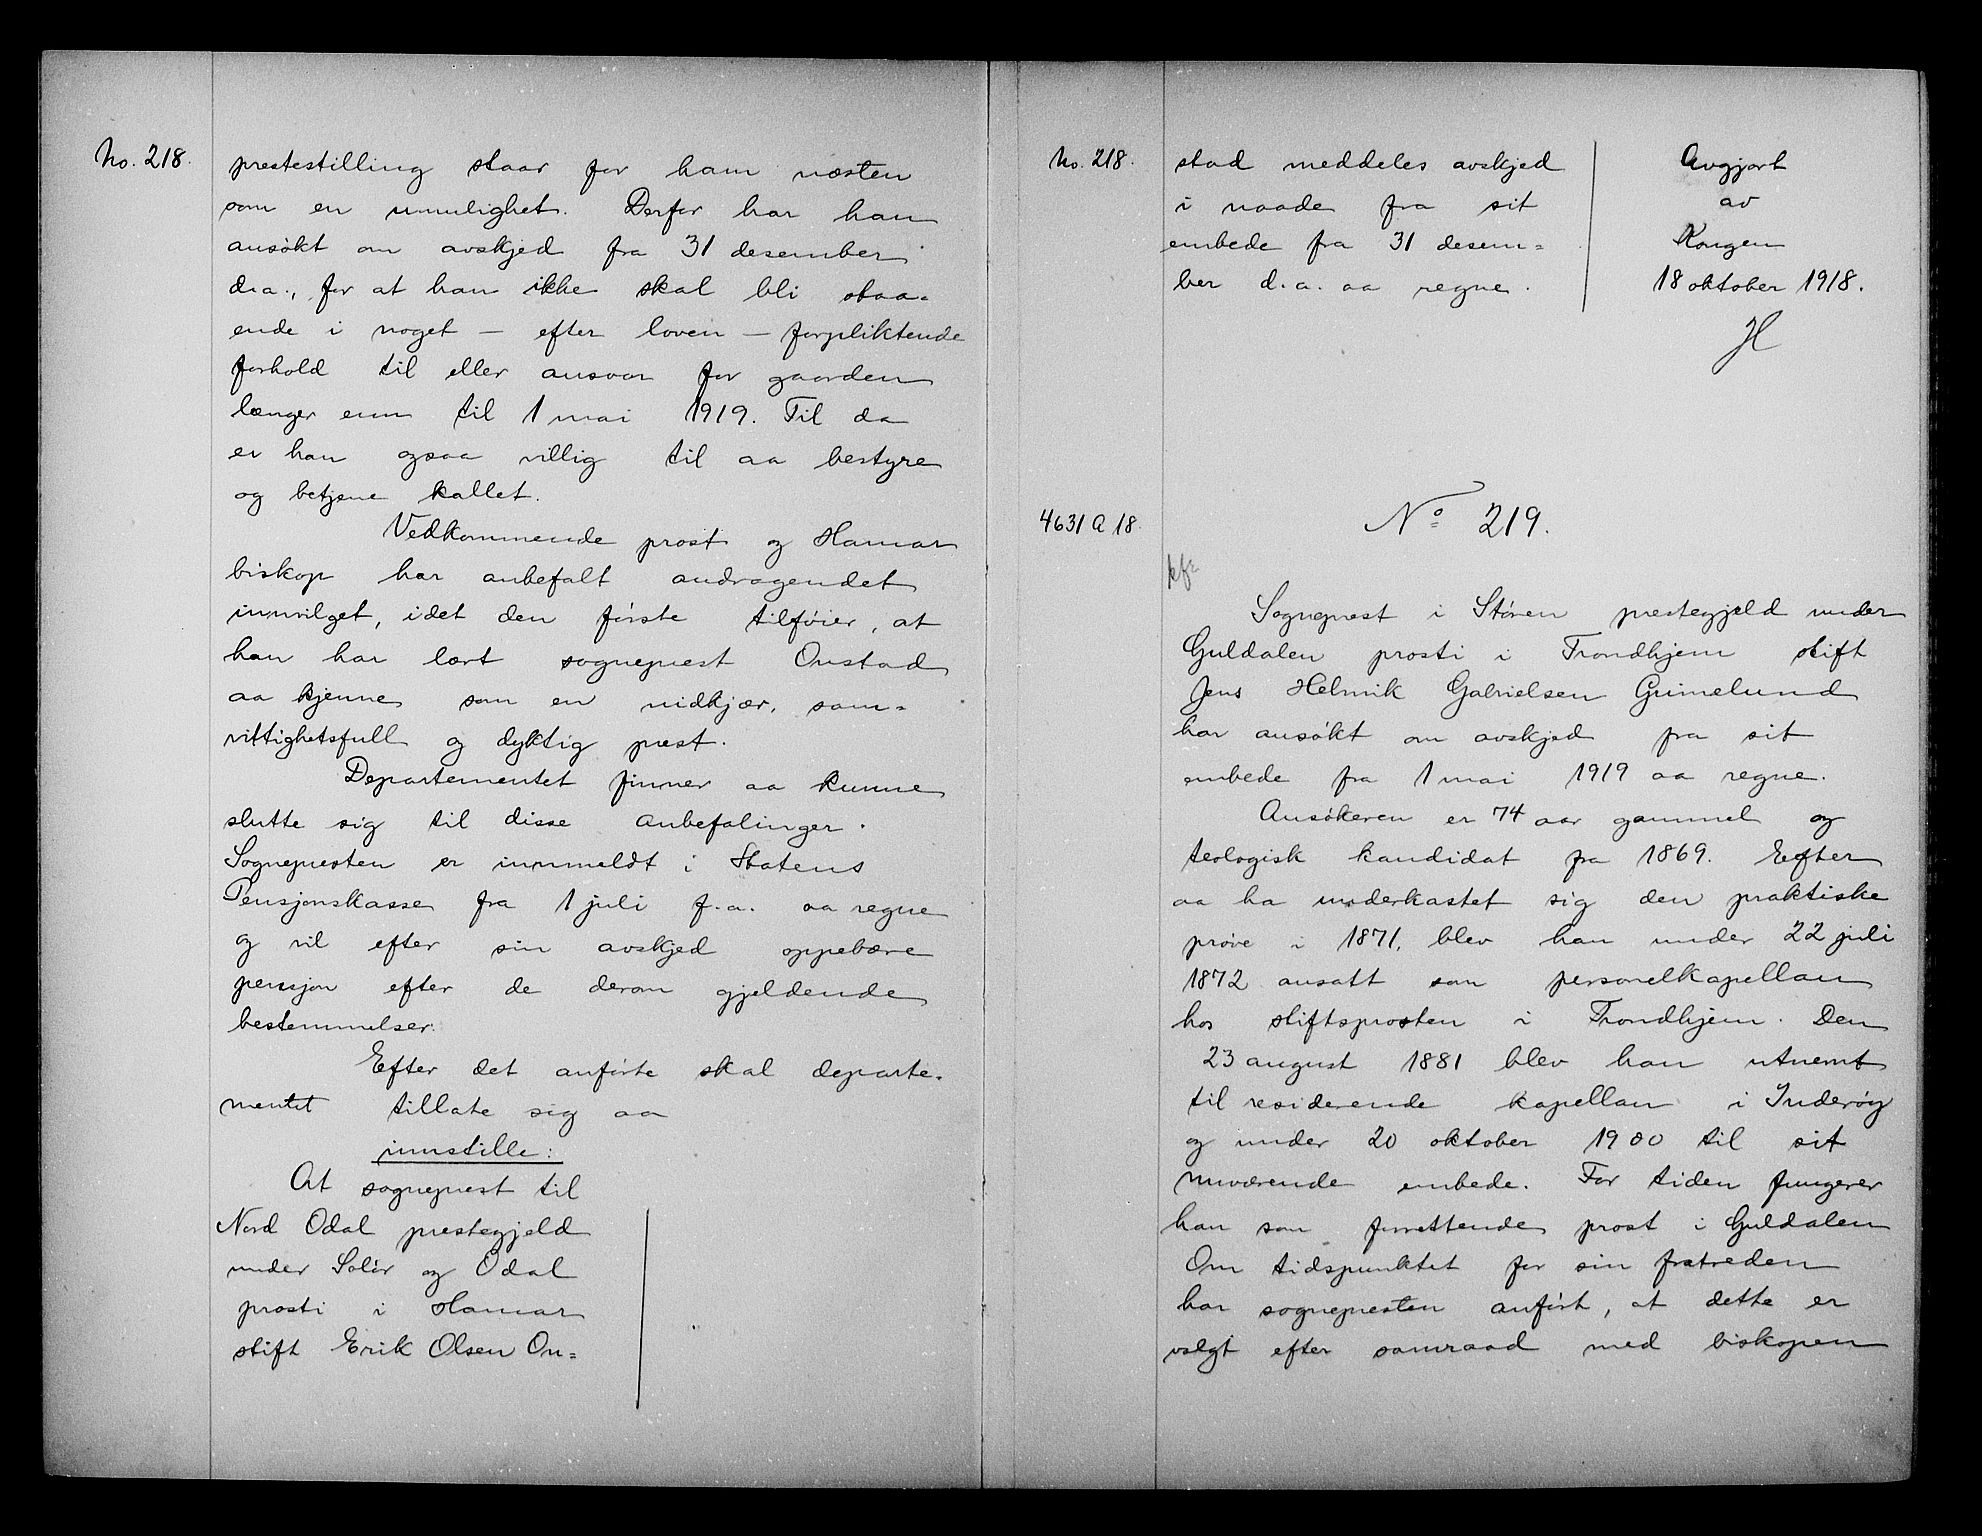 No. 218.
prestestilling staar for ham næsten
som en umulighet. Derfor har han
ansökt om avskjed fra 31 desember
d.a., for at han ikke skal bli staa-
ende i noget — efter loven — forpliktende
forhold til eller ansvar for gaarden
længer enn til 1 mai 1919. Til da
er han ogsaa villig til aa bestyre
og betjene kallet.
Vedkommende prost og Hamar
biskop har anbefalt andragendet
innvilget, idet den første tilføier, at
han har lært sogneprest Onstad
aa kjenne som en nidkjær, sam-
vittighetsfull og dyktig prest.
Departementet finner aa kunne
slutte sig til disse anbefalinger.
Sognepresten er innmeldt i Statens
Pensjonskasse fra 1 juli f.a. aa regne
og vil efter sin avskjed oppebære
pensjon efter de derom gjeldende
bestemmelser.
Efter det anførte skal departe-
mentet tillate sig aa
innstille:
At sogneprest til
Nord Odal prestegjeld
under Solör og Odal
prosti i Hamar
stift Erik Olsen On-
No. 218.
stad meddeles avskjed
i naade fra sit
embede fra 31 desem-
ber d.a. aa regne.
Avgjort
av
Kongen
18 oktober 1918.
H
4631 A 18.
No 219.
kfr
Sogneprest i Støren prestegjeld under
Guldalen prosti i Trondhjem stift
Jens Helmik Gabrielsen Grimelund
har ansökt om avskjed fra sit
embede fra 1 mai 1919 aa regne.
Ansökeren er 74 aar gammel og
teologisk kandidat fra 1869. Efter
aa ha underkastet sig den praktiske
prøve i 1871, blev han under 22 juli
1872 ansatt som personelkapellan
hos stiftsprosten i Trondhjem. Den
23 august 1881 blev han utnemt
til residerende kapellan i Inderøy
og under 20 oktober 1900 til sit
nuværende embede. For tiden fungerer
han som forrettende prost i Guldalen
Om tidspunktet for sin fratreden
har sognepresten anført, at dette er
valgt efter samraad med biskopen